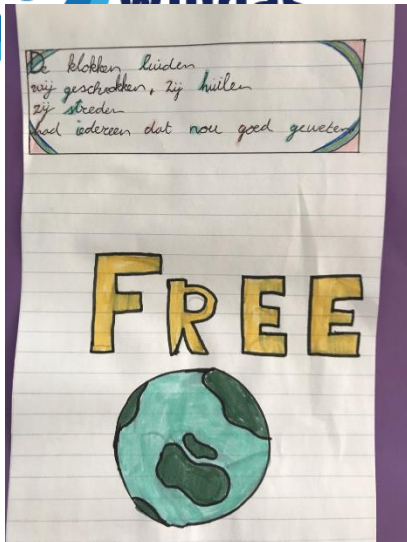 De klokken luiden
wij geschrokken, zij huilen
zij streden
had iedereen dat nou goed geweten
FREE